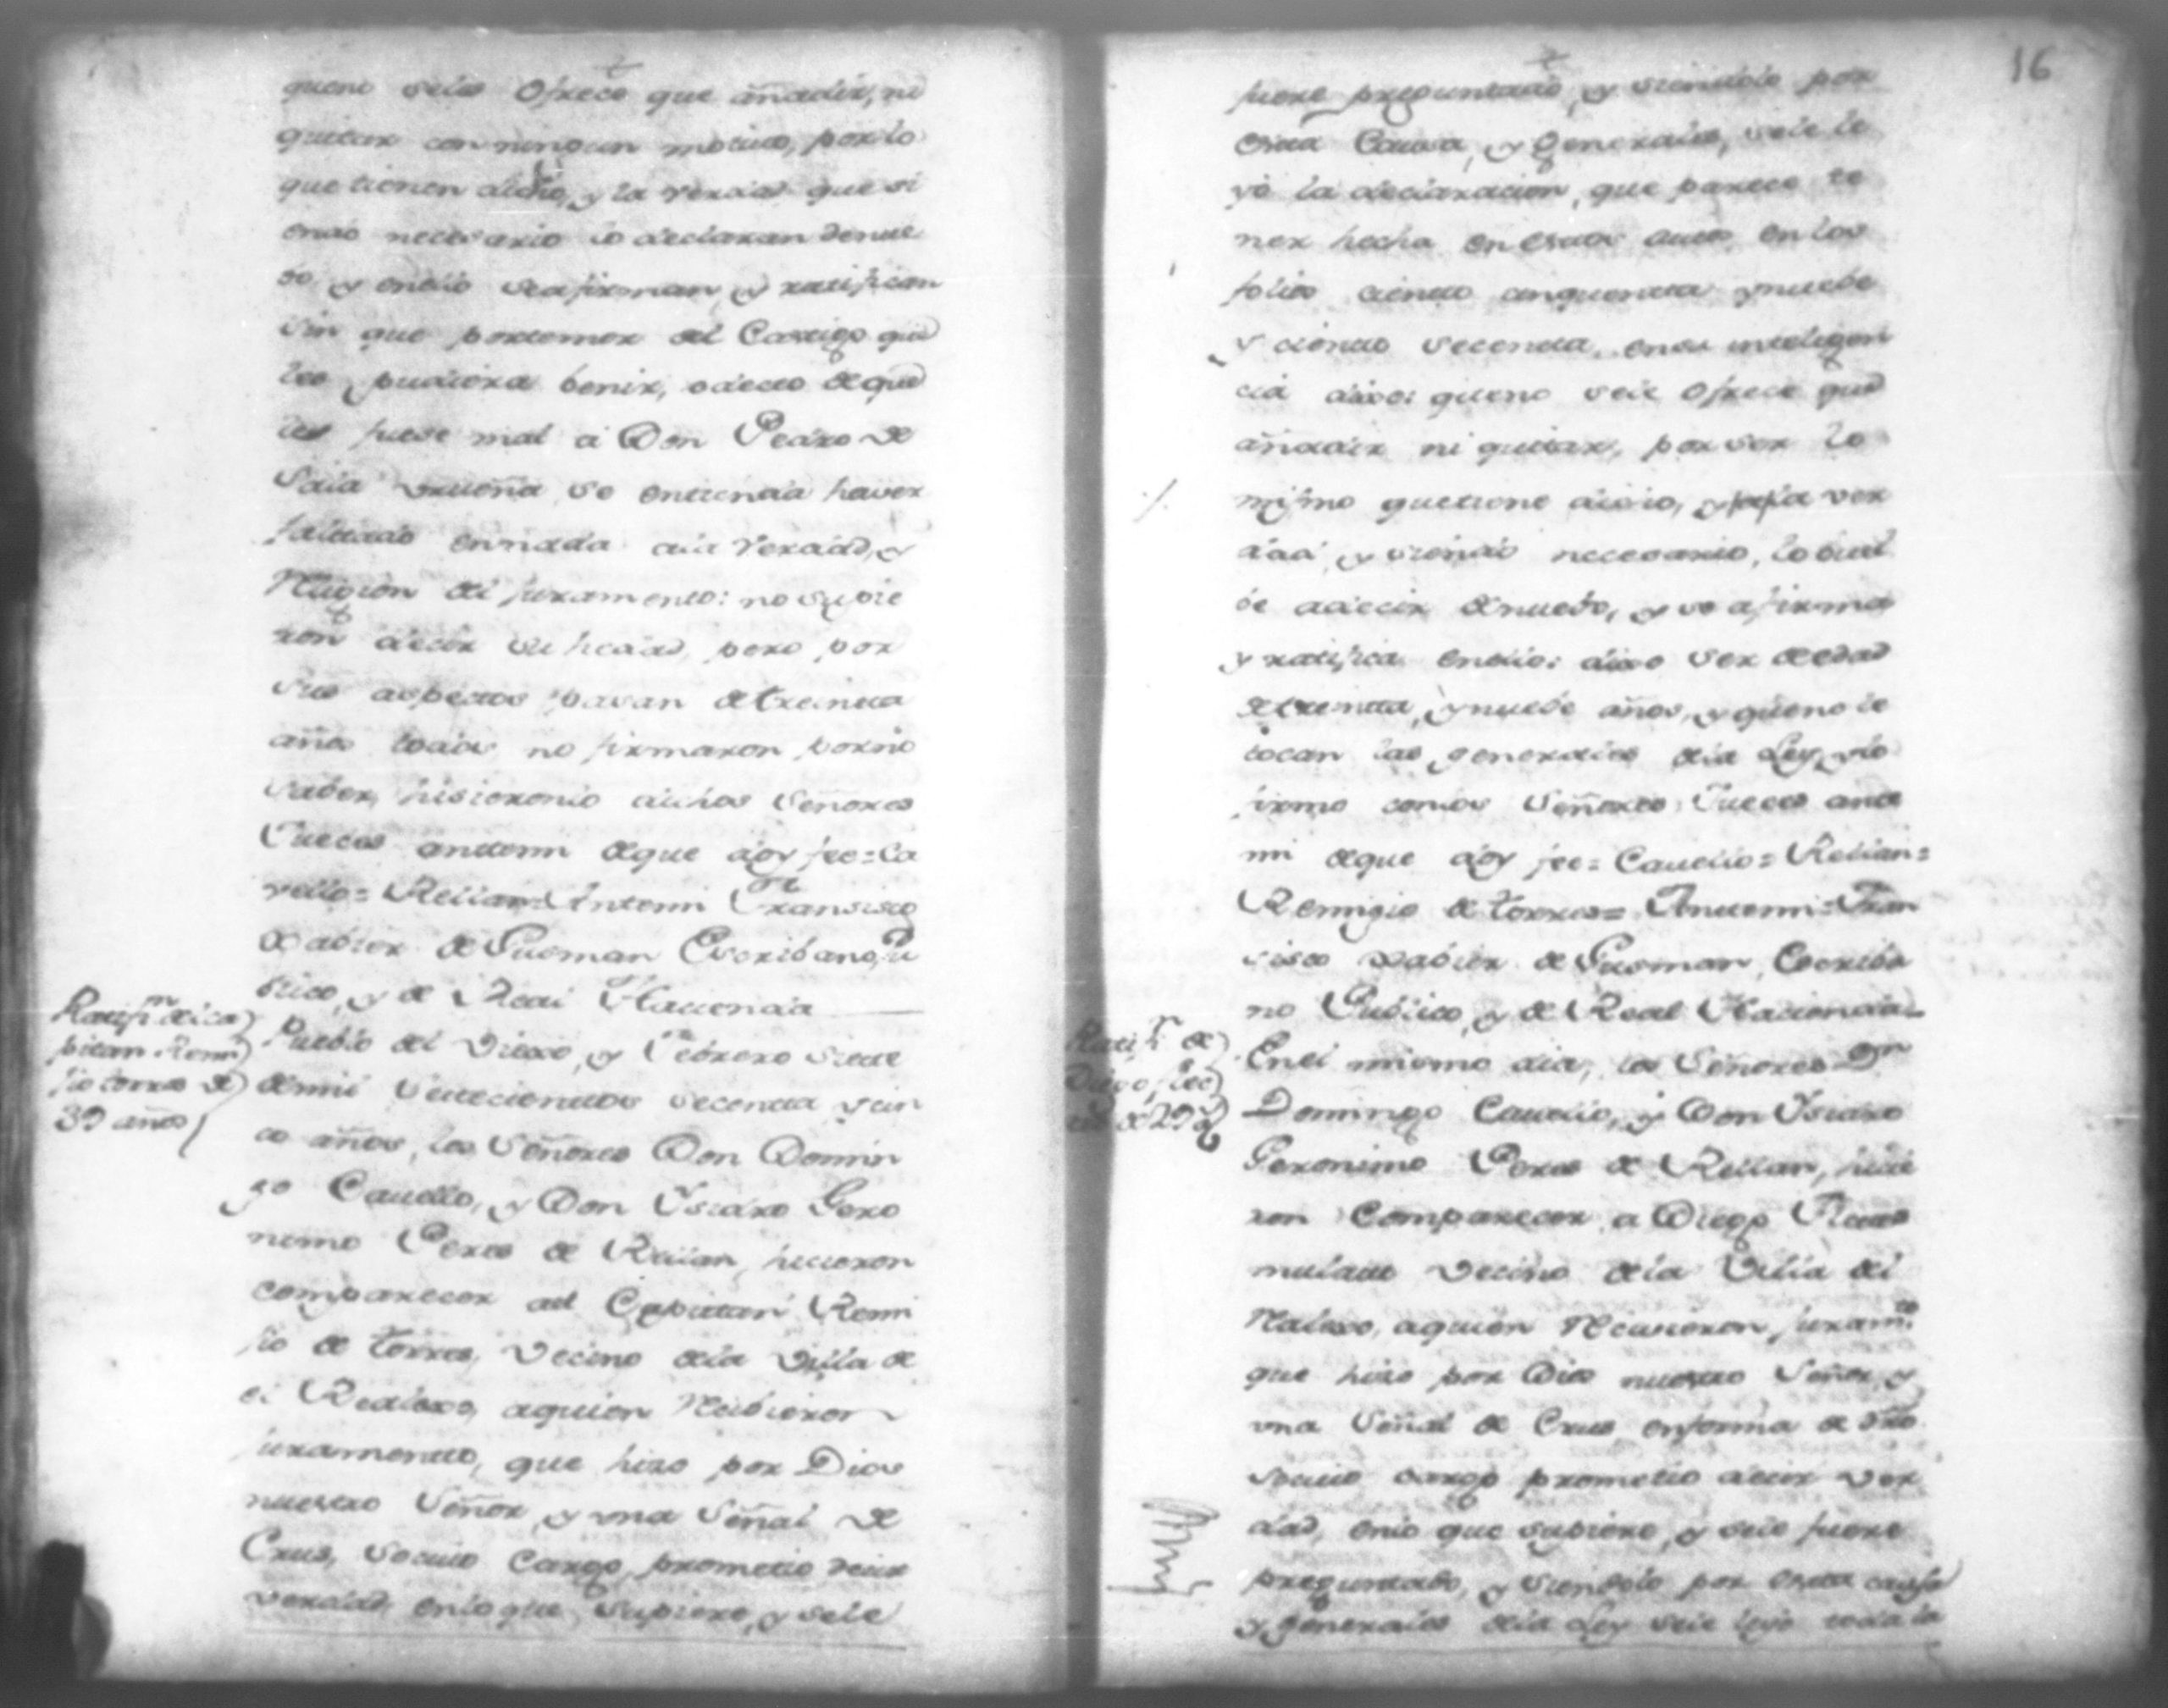 queno selés Ofrece que añadir, ni
quitar con ningun motivo, por lo
que tienen dicho, y la verdad que si
endo necesario lo declaran denue
bo, y enello seafirman, y ratifican
sin que portemor del Castigo que
les pudiera benir, odeceo deque
les fuese mal a Don Pedro de
Sala se entienda haver
faltado ennada ala Verdad, y
Religion del juramento: no supie
ron decir su hedad, pero por
sus aspectos pasan detreinta
años todos no firmaron porno
saber, hisieronlo dichos Señores
Jueces antemi deque doy fee = Ca
vello = Rellan = Antemi Fransisco
Xabier de Gusman Escribano Pu
blico, y de Real Hacienda
Ratifn. delca
pitan Remi
jio torres de
39 años
Pueblo del Viexo, y Febrero siete
demil Setecientos secenta y cin
co años, los Señores Don Domin
go Cauello, y Don Ysidro Gero
nimo Peres de Rellan, hicieron
comparecer al Capitan Remi
jio de torres, Vecino dela Villa de
el Realexo, aquien Resibieron
juramento, que hizo por Dios
nuestro Señor, y una Señal de
Crus, socuio Cargo, prometio decir
verdad enlo que supiere, y sele
16
fuere preguntado, y siendolo por
esta Causa, y Generales, sele le
yó la declaracion, que parece te
ner hecha en estos autos en los
folios ciento cinquenta ynuebe
y ciento secenta, ensu inteligen
cia dixo: queno sele Ofrece que
añadir ni quitar, por ser lo
mismo quetiene dicho, y la ver
dad, y siendo necesario, lo buel
be adecir denuebo, y se afirma
y ratifica enello: dixo ser deedad
detreinta, ynuebe años, y queno le
tocan las generales dela Ley, y lo
firmo conlos Señores Jueces ante
mi deque doy fee = Cauello = Rellan =
Remigio de torres = Antemi = Fran
sisco Xabier de Gusman, Escriba
no Publico, y de Real Hacienda =
Ratifn. de
Diego
de 29 as.
Enel mismo dia, los Señores Dn.
Domingo Cauello, y Don Ysidro
Geronimo Peres de Rellan, hicie
ron Comparecer a Diego
mulato Vecino dela Villa del
Realexo, aquien Recivieron juramto.
que hizo por Dios nuestro Señor, y
una Señal de Crus enforma de dro.
socuio cargo prometio decir ver
dad, enlo que supiere, y sele fuere
preguntado, y siendolo por esta causa
y generales dela Ley sele leyó toda la